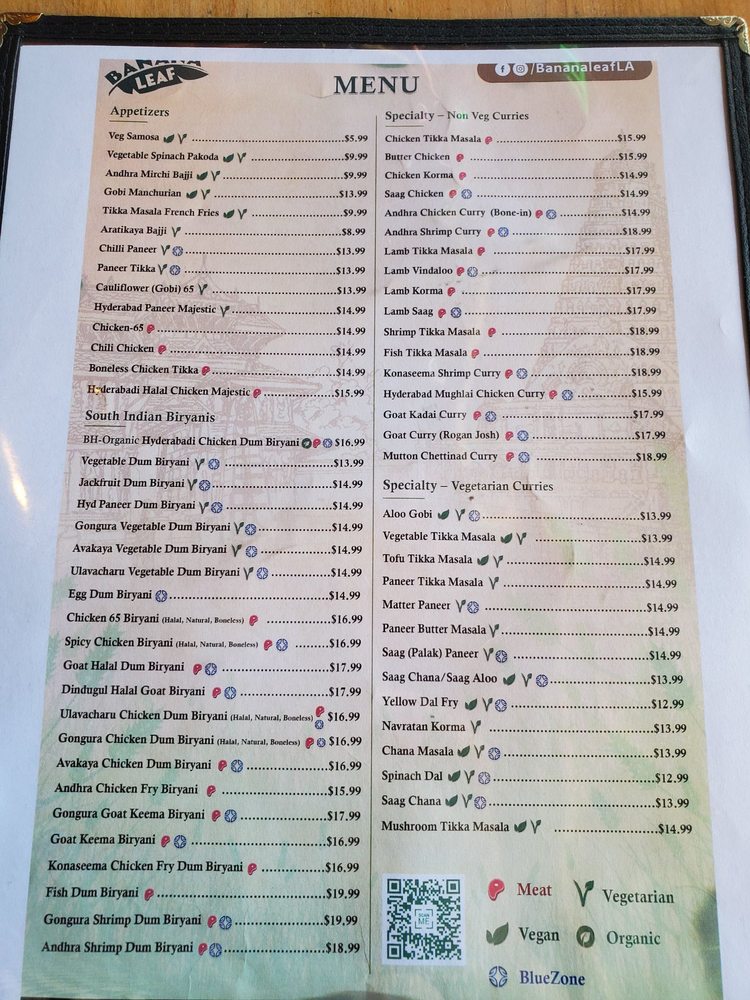 BANANA
LEAF
MENU
/BananaleafLA
Appetizers
Veg Samosa $5.99
Vegetable Spinach Pakoda $9.99
Andhra Mirchi Bajji $9.99
Gobi Manchurian $13.99
Tikka Masala French Fries $9.99
Aratikaya Bajji $8.99
Chilli Paneer $13.99
Paneer Tikka $13.99
Cauliflower (Gobi) 65 $13.99
Hyderabad Paneer Majestic $14.99
Chicken-65 $14.99
Chili Chicken $14.99
Boneless Chicken Tikka $14.99
Hyderabadi Halal Chicken Majestic $15.99
South Indian Biryanis
BH-Organic Hyderabadi Chicken Dum Biryani $16.99
Vegetable Dum Biryani $13.99
Jackfruit Dum Biryani $14.99
Hyd Paneer Dum Biryani $14.99
Gongura Vegetable Dum Biryani $14.99
Avakaya Vegetable Dum Biryani $14.99
Ulavacharu Vegetable Dum Biryani $14.99
Egg Dum Biryani $14.99
Chicken 65 Biryani (Halal, Natural, Boneless) $16.99
Spicy Chicken Biryani (Halal, Natural, Boneless) $16.99
Goat Halal Dum Biryani $17.99
Dindugul Halal Goat Biryani $17.99
Ulavacharu Chicken Dum Biryani (Halal, Natural, Boneless) $16.99
Gongura Chicken Dum Biryani (Halal, Natural, Boneless) $16.99
Avakaya Chicken Dum Biryani $16.99
Andhra Chicken Fry Biryani $15.99
Gongura Goat Keema Biryani $17.99
Goat Keema Biryani $16.99
Konaseema Chicken Fry Dum Biryani $16.99
Fish Dum Biryani $19.99
Gongura Shrimp Dum Biryani $19.99
Andhra Shrimp Dum Biryani $18.99
Specialty – Non Veg Curries
Chicken Tikka Masala $15.99
Butter Chicken $15.99
Chicken Korma $14.99
Saag Chicken $14.99
Andhra Chicken Curry (Bone-in) $14.99
Andhra Shrimp Curry $18.99
Lamb Tikka Masala $17.99
Lamb Vindaloo $17.99
Lamb Korma $17.99
Lamb Saag $17.99
Shrimp Tikka Masala $18.99
Fish Tikka Masala $18.99
Konaseema Shrimp Curry $18.99
Hyderabad Mughlai Chicken Curry $15.99
Goat Kadai Curry $17.99
Goat Curry (Rogan Josh) $17.99
Mutton Chettinad Curry $18.99
Specialty – Vegetarian Curries
Aloo Gobi $13.99
Vegetable Tikka Masala $13.99
Tofu Tikka Masala $14.99
Paneer Tikka Masala $14.99
Matter Paneer $14.99
Paneer Butter Masala $14.99
Saag (Palak) Paneer $14.99
Saag Chana/Saag Aloo $13.99
Yellow Dal Fry $12.99
Navratan Korma $13.99
Chana Masala $13.99
Spinach Dal $12.99
Saag Chana $13.99
Mushroom Tikka Masala $14.99
SCAN
ME
Meat Vegetarian
Vegan Organic
BlueZone